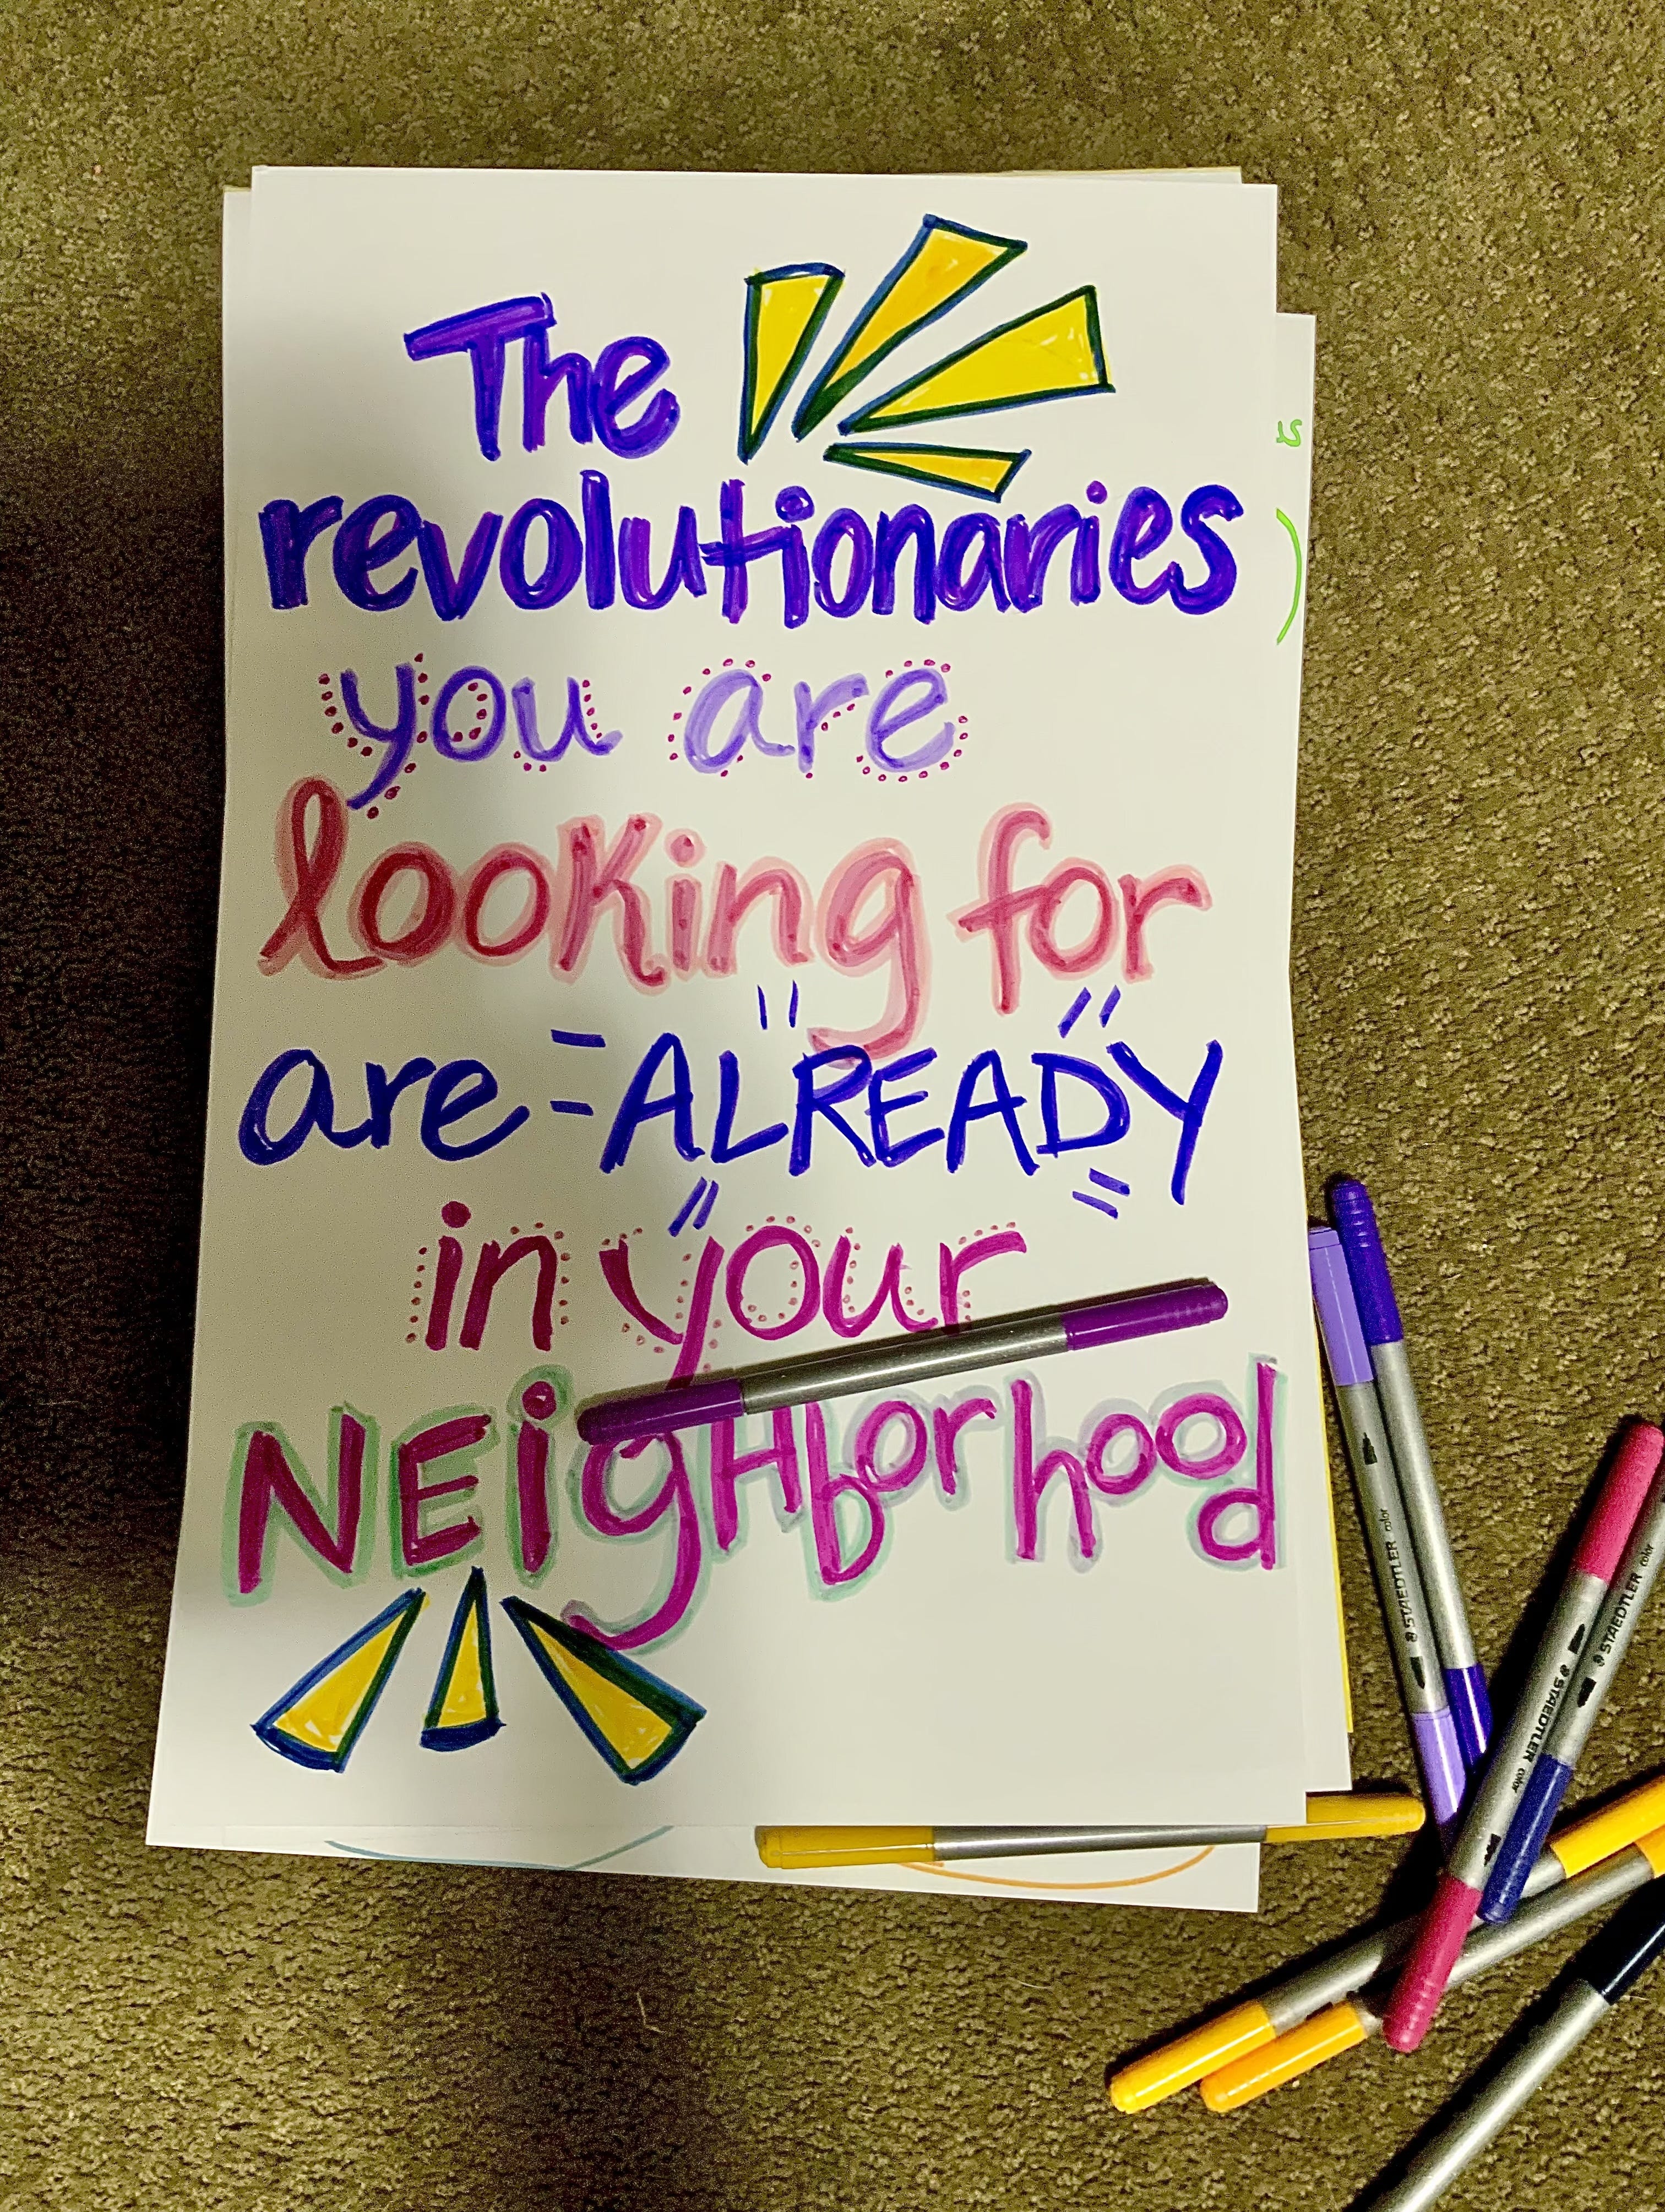 The
revolutionaries
you are
looking for
are ALREADY
in your
NEigHborhood
STAEDTLER color
STAEDTLER color
STAEDTLER color